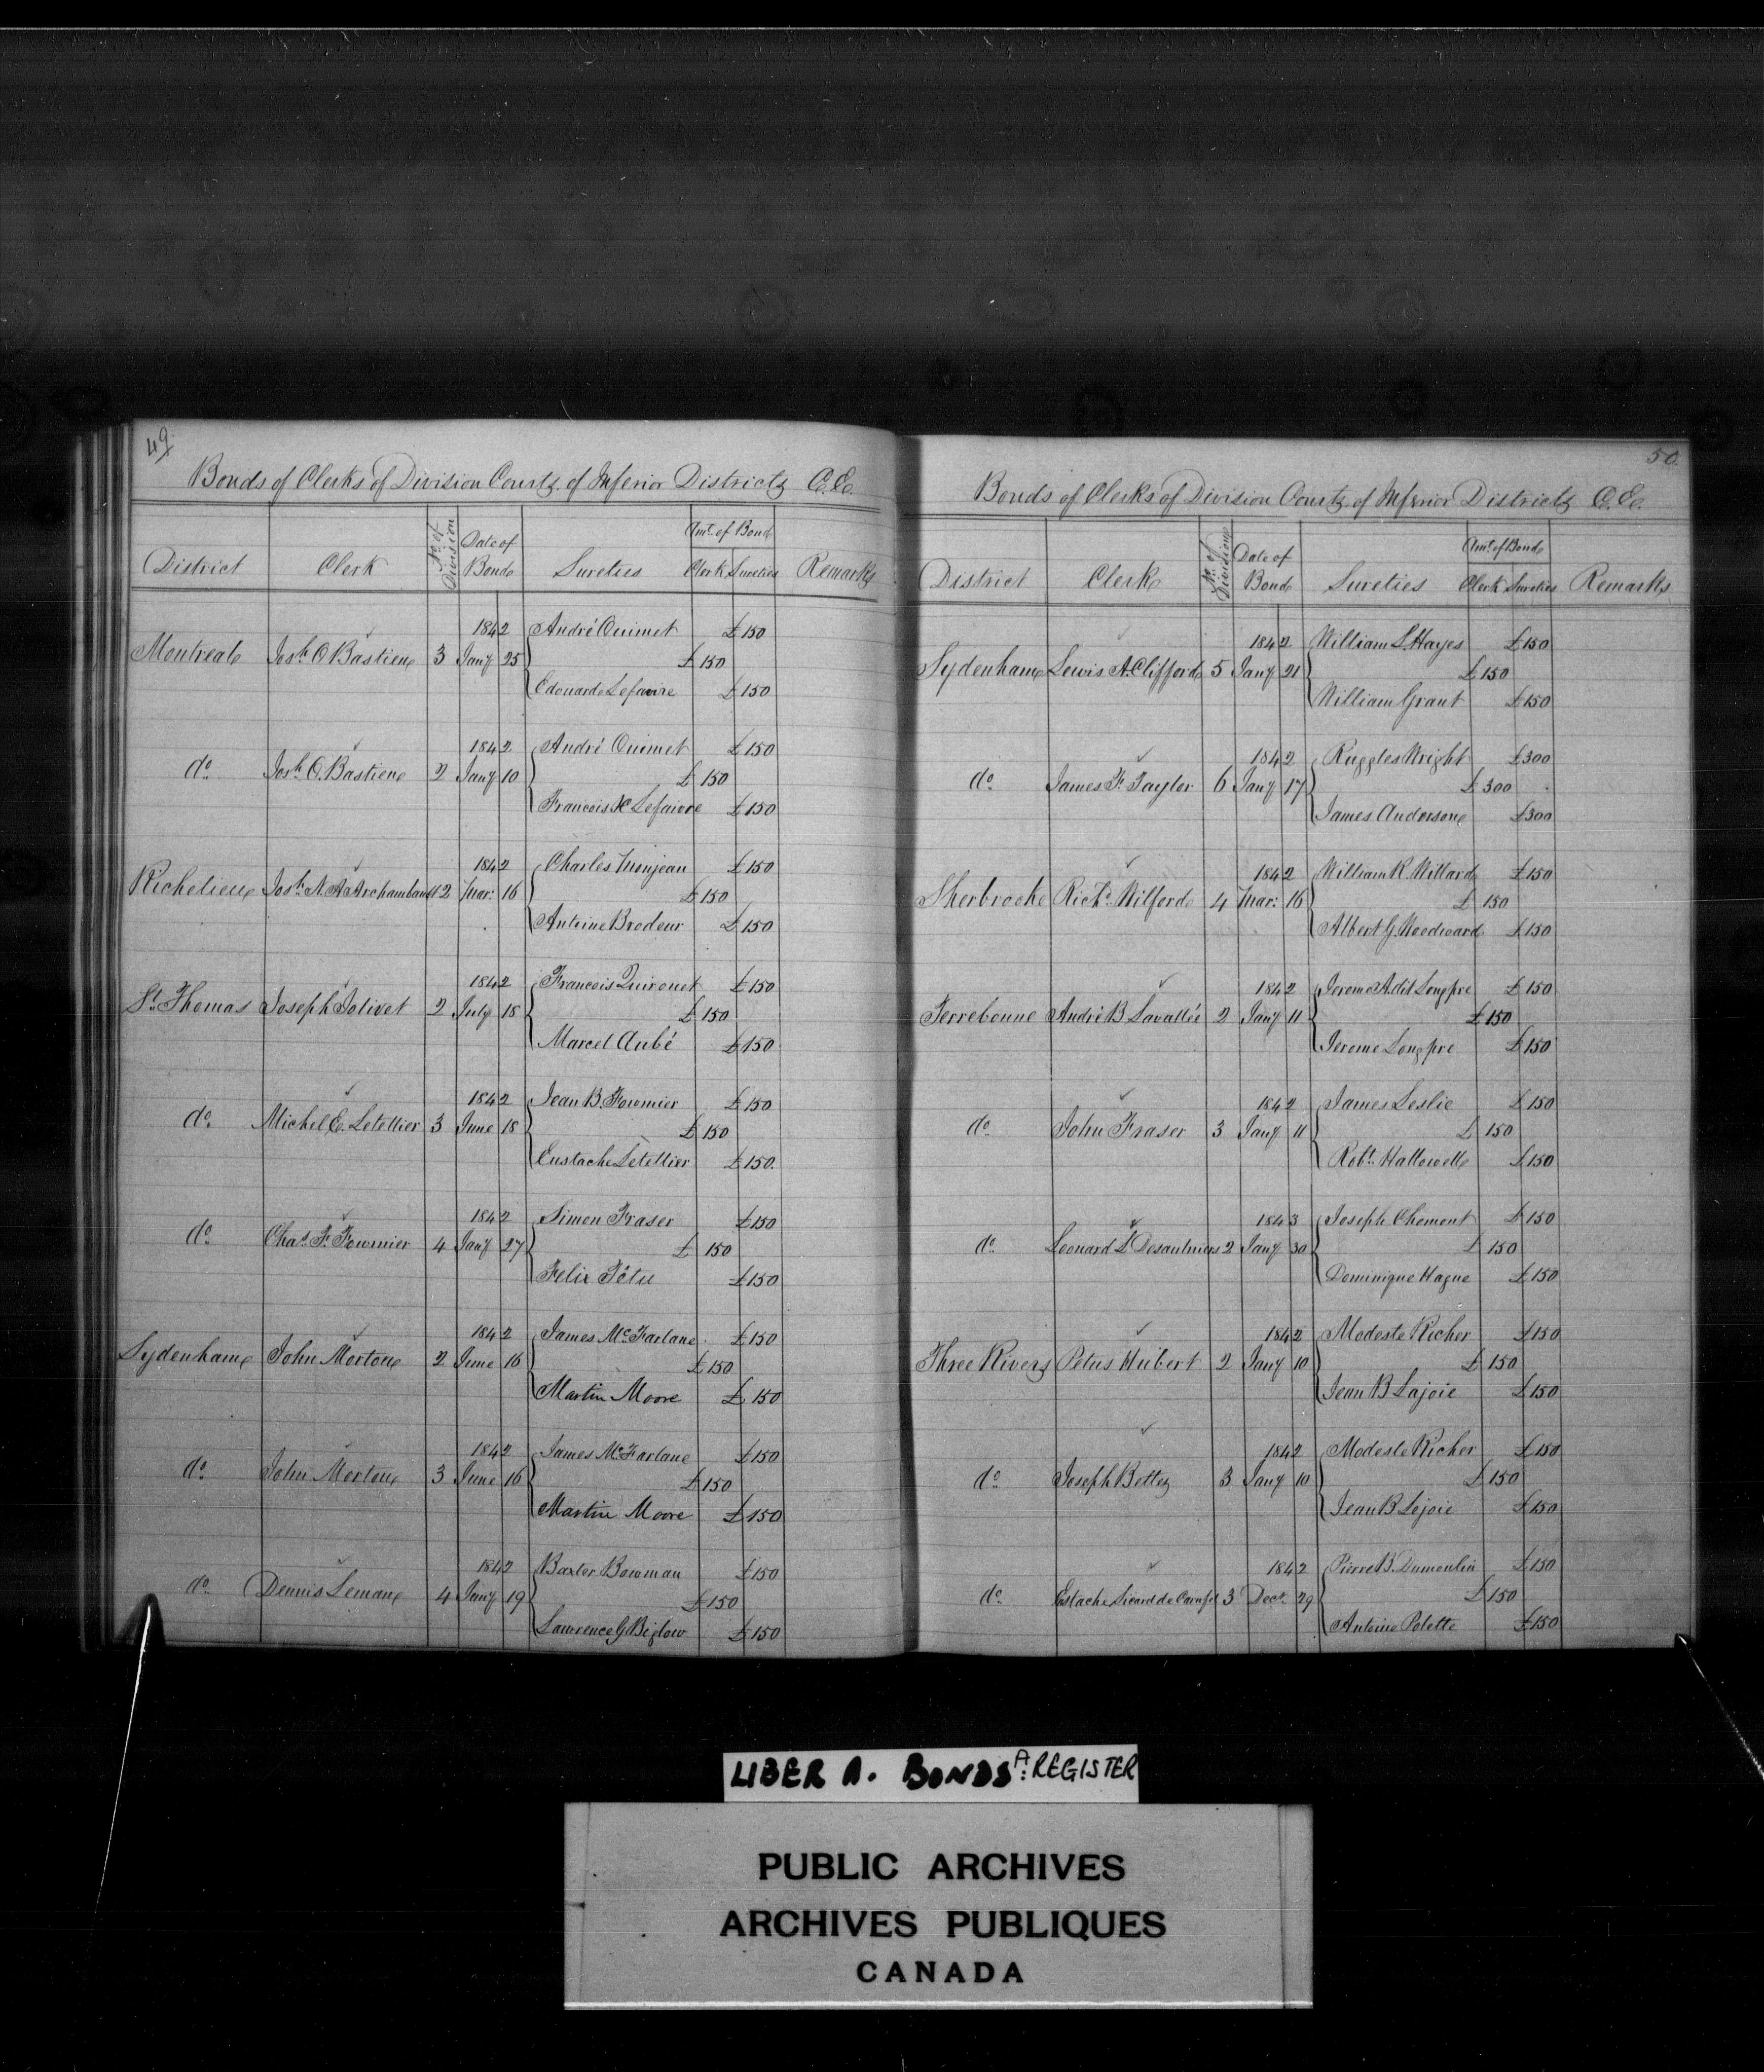 49
Bonds of Clerks of Division Courts of Inferior Districts C.E.
District Clerk No. of Division Date of Bond Sureties Amt. of Bond Clerk Sureties Remarks
1842 André Ouimet £150
Montreal Josh. O Bastien 3 Jany 25 £150
Edouard Lefaivre £150
1842 André Ouimet £150
do. Josh. O. Bastien 2 Jany 10 £150
Francois X Lefaivre £150
1842 Charles Monjean £150
Richelieu Josh. N. A. Archambault 2 Mar: 16 £150
Antoine Brodeur £150
1842 Francois £150
St. Thomas Joseph Jolivet 2 July 18 £150
Marcel Aubé £150
1842 Jean B. Fournier £150
do. Michel E. Letellier 3 June 18 £150
Eustache Letellier £150
1842 Simon Fraser £150
do. Chas. F. Fournier 4 Jany 27 £150
Felix Têtu £150
1842 James McFarlane £150
Sydenham John Morton 2 June 16 £150
Martin Moore £150
1842 James McFarlane £150
do. John Morton 3 June 16 £150
Martin Moore £150
1842 Baxter Bowman £150
do. Dennis Leman 4 Jany 19 £150
Lawrence G Biglow £150
50
Bonds of Clerks of Division Courts of Inferior Districts C.E.
District Clerk No. of Division Date of Bond Sureties Amt. of Bond Clerk Sureties Remarks
1842 William L. Hayes £150
Sydenham Lewis A. Clifford 5 Jany 21 £150
William Grant £150
1842 Ruggles Wright £300
do. James F. Taylor 6 Jany 17 £300
James Anderson £300
1842 William R. Willard £150
Sherbrooke Richd. Wilford 4 Mar: 16 £150
Albert G. Woodward £150
1842 Jerome A. dit Longpre £150
Terrebonne André B Lavallée 2 Jany 11 £150
Jerome Longpre £150
1842 James Leslie £150
do. John Fraser 3 Jany 11 £150
Robt. Hallowell £150
1843 Joseph Chement £150
do. Leonard L Desaulniers 2 Jany 30 £150
Dominique Hague £150
1842 Modeste Richer £150
Three Rivers Petus Hubert 2 Jany 10 £150
Jean B Lajoie £150
1842 Modeste Richer £150
do. Joseph Bettez 3 Jany 10 £150
Jean B Lajoie £150
1842 Pierre B. Dumoulin £150
do. Estache Sicard de Carufel 3 Decr. 29 £150
Antoine Polette £150
LIBER A. BONDS A: REGISTER
PUBLIC ARCHIVES
ARCHIVES PUBLIQUES
CANADA